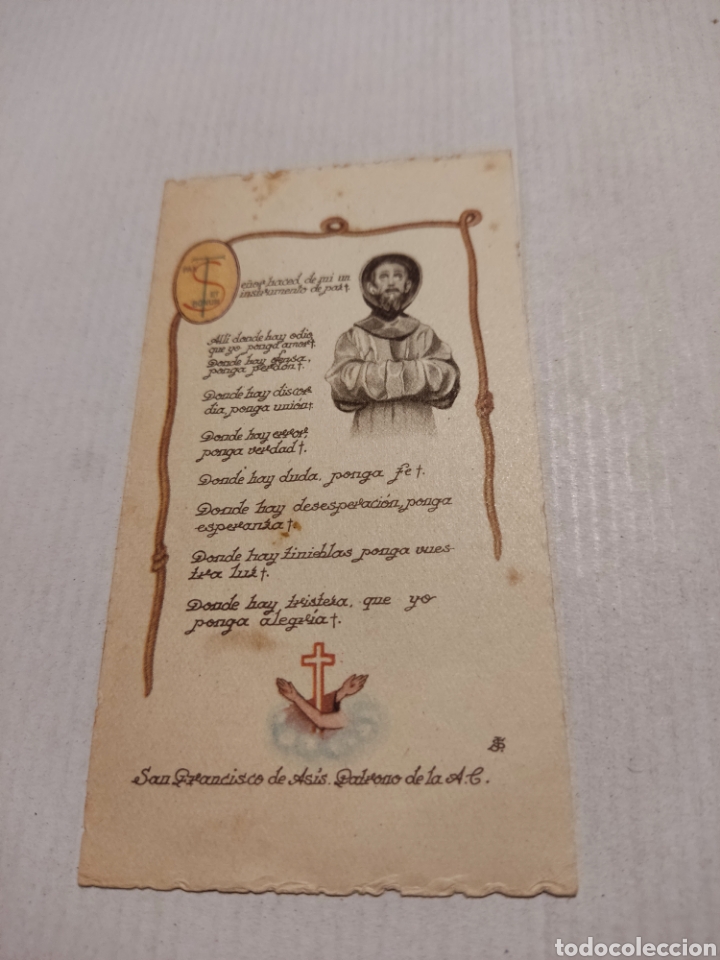 PAX
ET
BONUM
Señor haced de mi un
instrumento de paz†.
Allí donde hay odio
que yo ponga amor†.
Donde hay ofensa,
ponga perdón†.
Donde hay discor
dia, ponga unión†.
Donde hay error,
ponga verdad†.
Donde hay duda, ponga fe†.
Donde hay desesperación, ponga
esperanza†.
Donde hay tinieblas ponga vues-
tra luz†.
Donde hay tristeza, que yo
ponga alegría†.
San Francisco de Asís. Patrono de la A.C.
todocoleccion